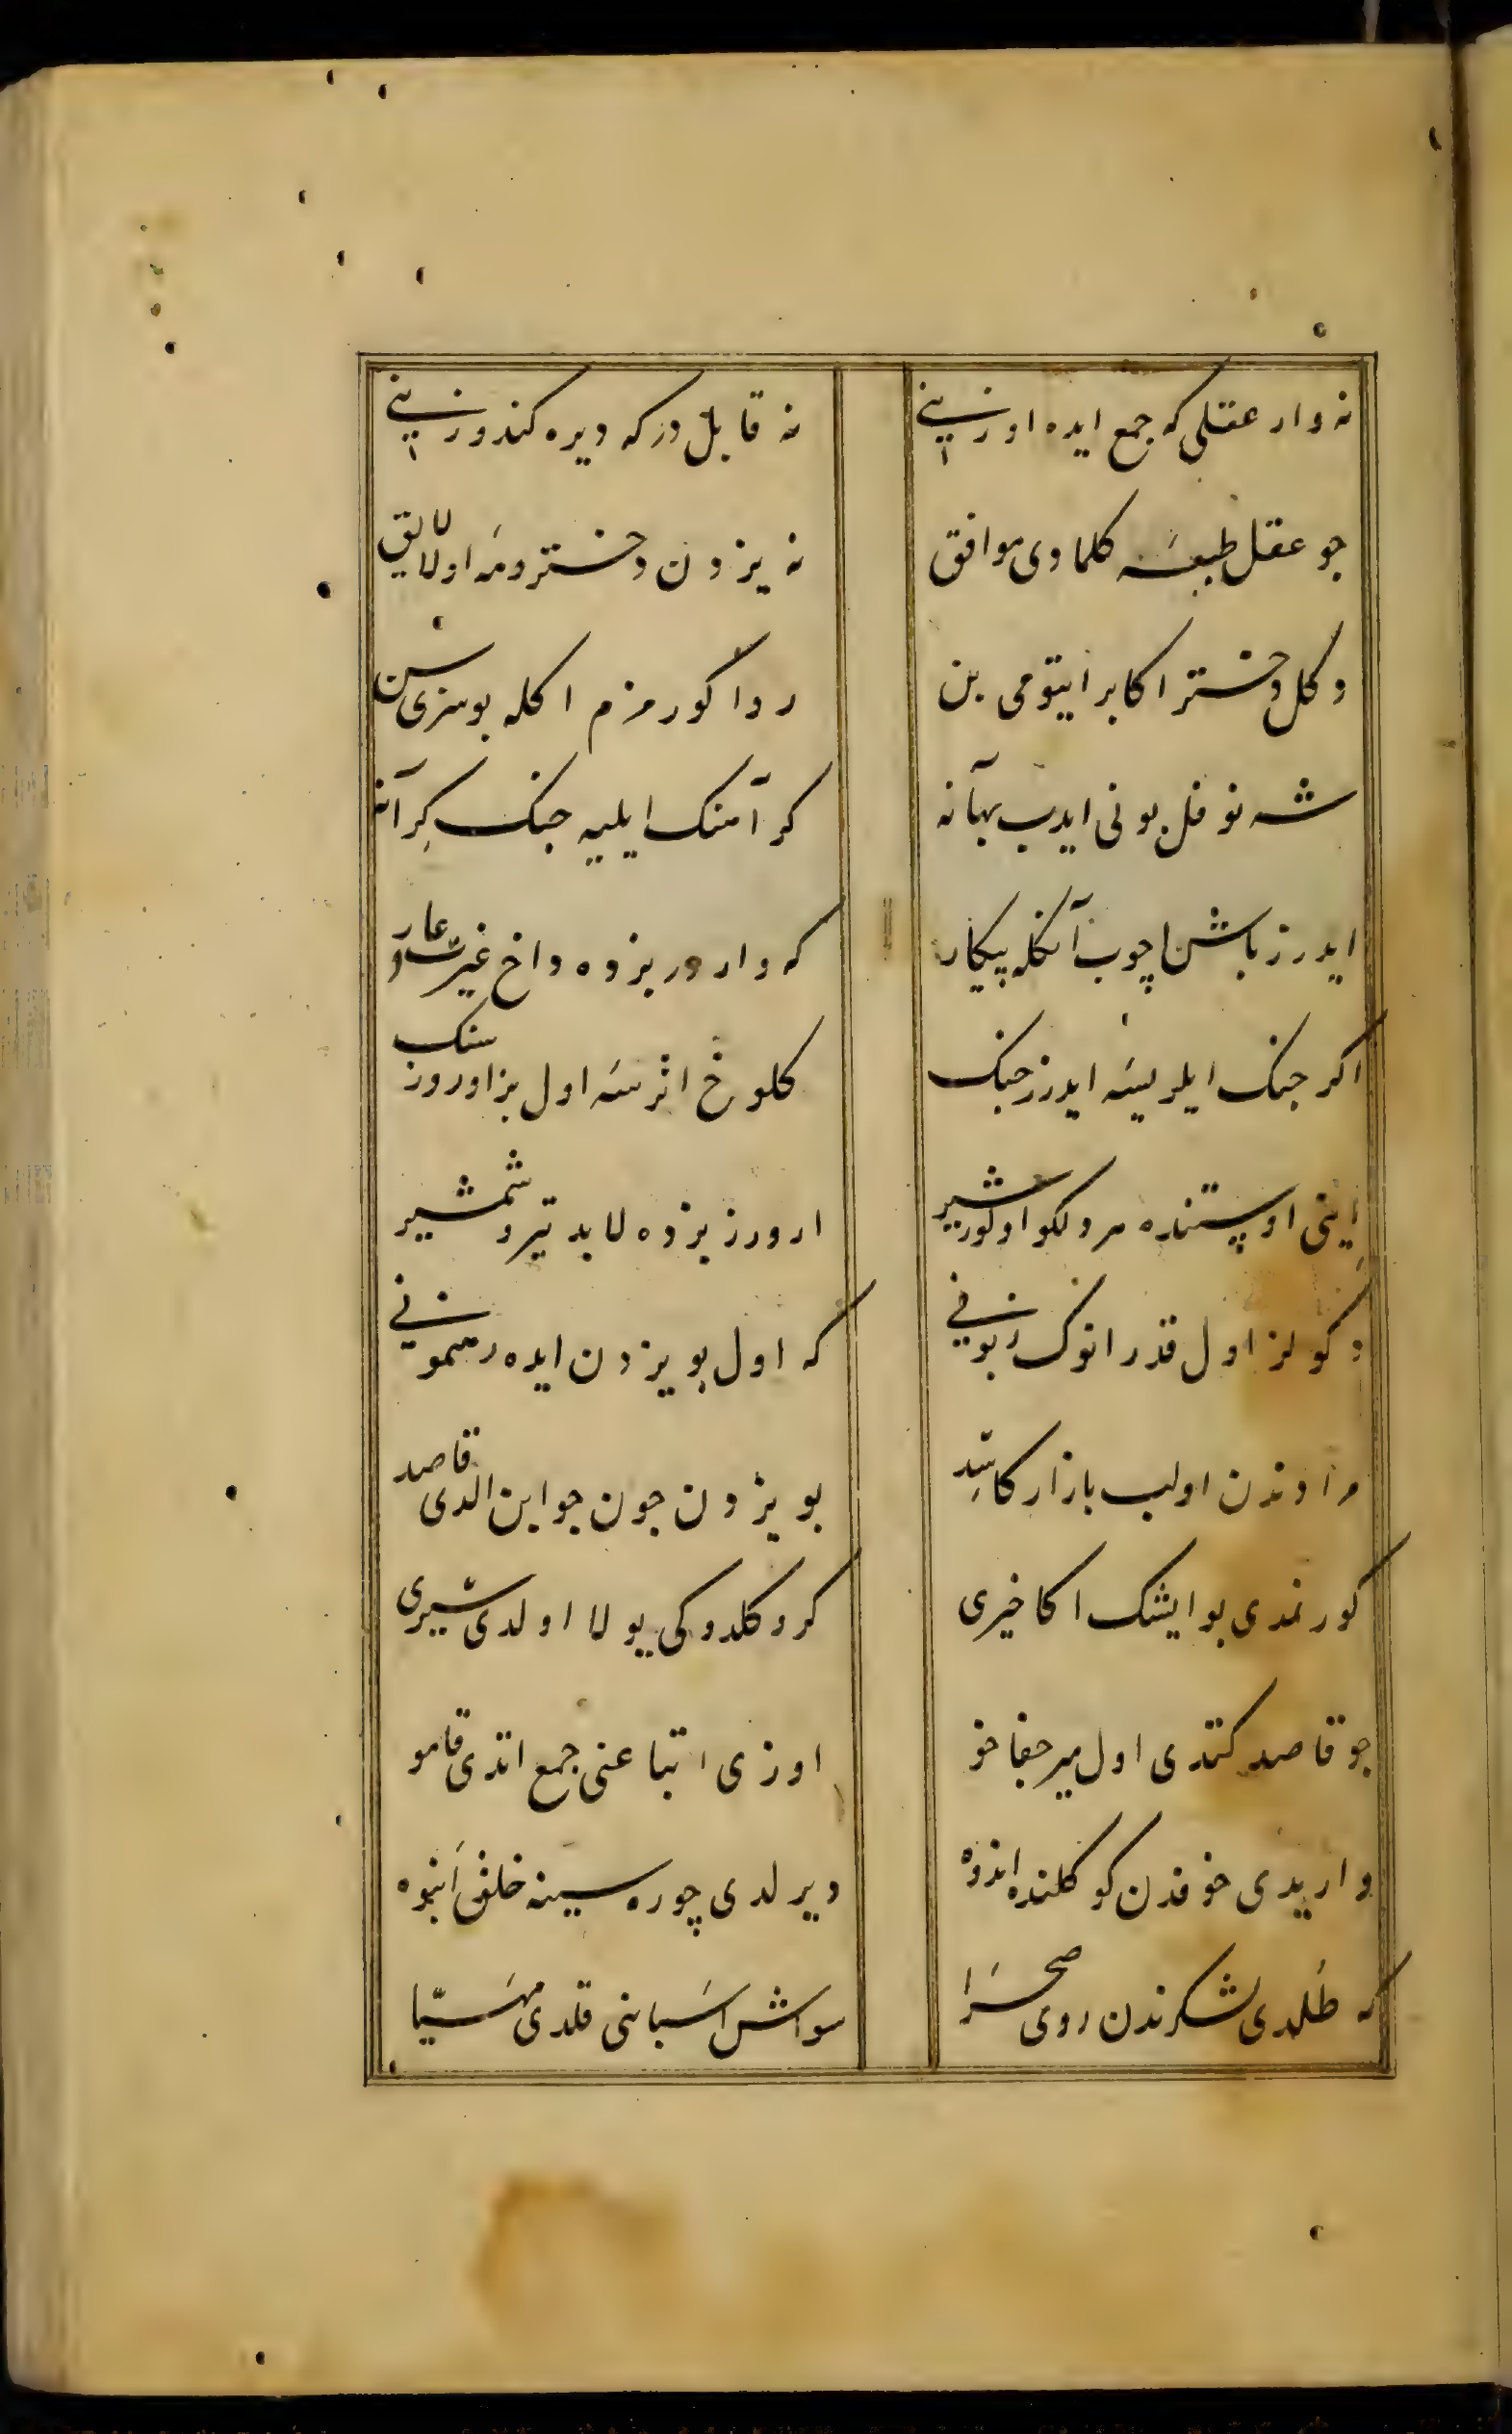 نه وار عقلی که جمع ایده اوزینی نه قابل درکه دیره کندوزینی
جو عقل طبعنه کلمادی موافق نه یزدن دخترومه اولا لایق
دکل دختر اکابر ایتومی بن روا کورمزم اکله بوسزی سن
شه نوفل بونی ایدب بهآنه کر آهنک ایلیه جنک کرآنه
ایدرز باش اچوب آنکله پیکار که واردر بزده داخ غیرت و عار
اکر جنک ایلریسه ایدرز جنک کلوخ اترسه اول بز اوروز سنک
اینی اوستنده هر دلکو اولور شیر اورورز بزده لابد تیر و شمشیر
دکولز اول قدر انوک زبونی که اول بو یزدن ایده رهنمونی
مرادندن اولب بازار کاسد بو یزدن جون جوابن الدی قاصد
کورنمدی بو ایشک اکا خیری کرو کلدوکی یولا اولدی سیری
جو قاصد کتدی اول میر جفا خو اوزی اتباعنی جمع اتدی قامو
واریدی خوفدن کوکلنده اندوه دیرلدی چوره سینه خلق انبوه
که طلدی لشکرندن روی صحرا سواش اسبابنی قلدی مهیّا